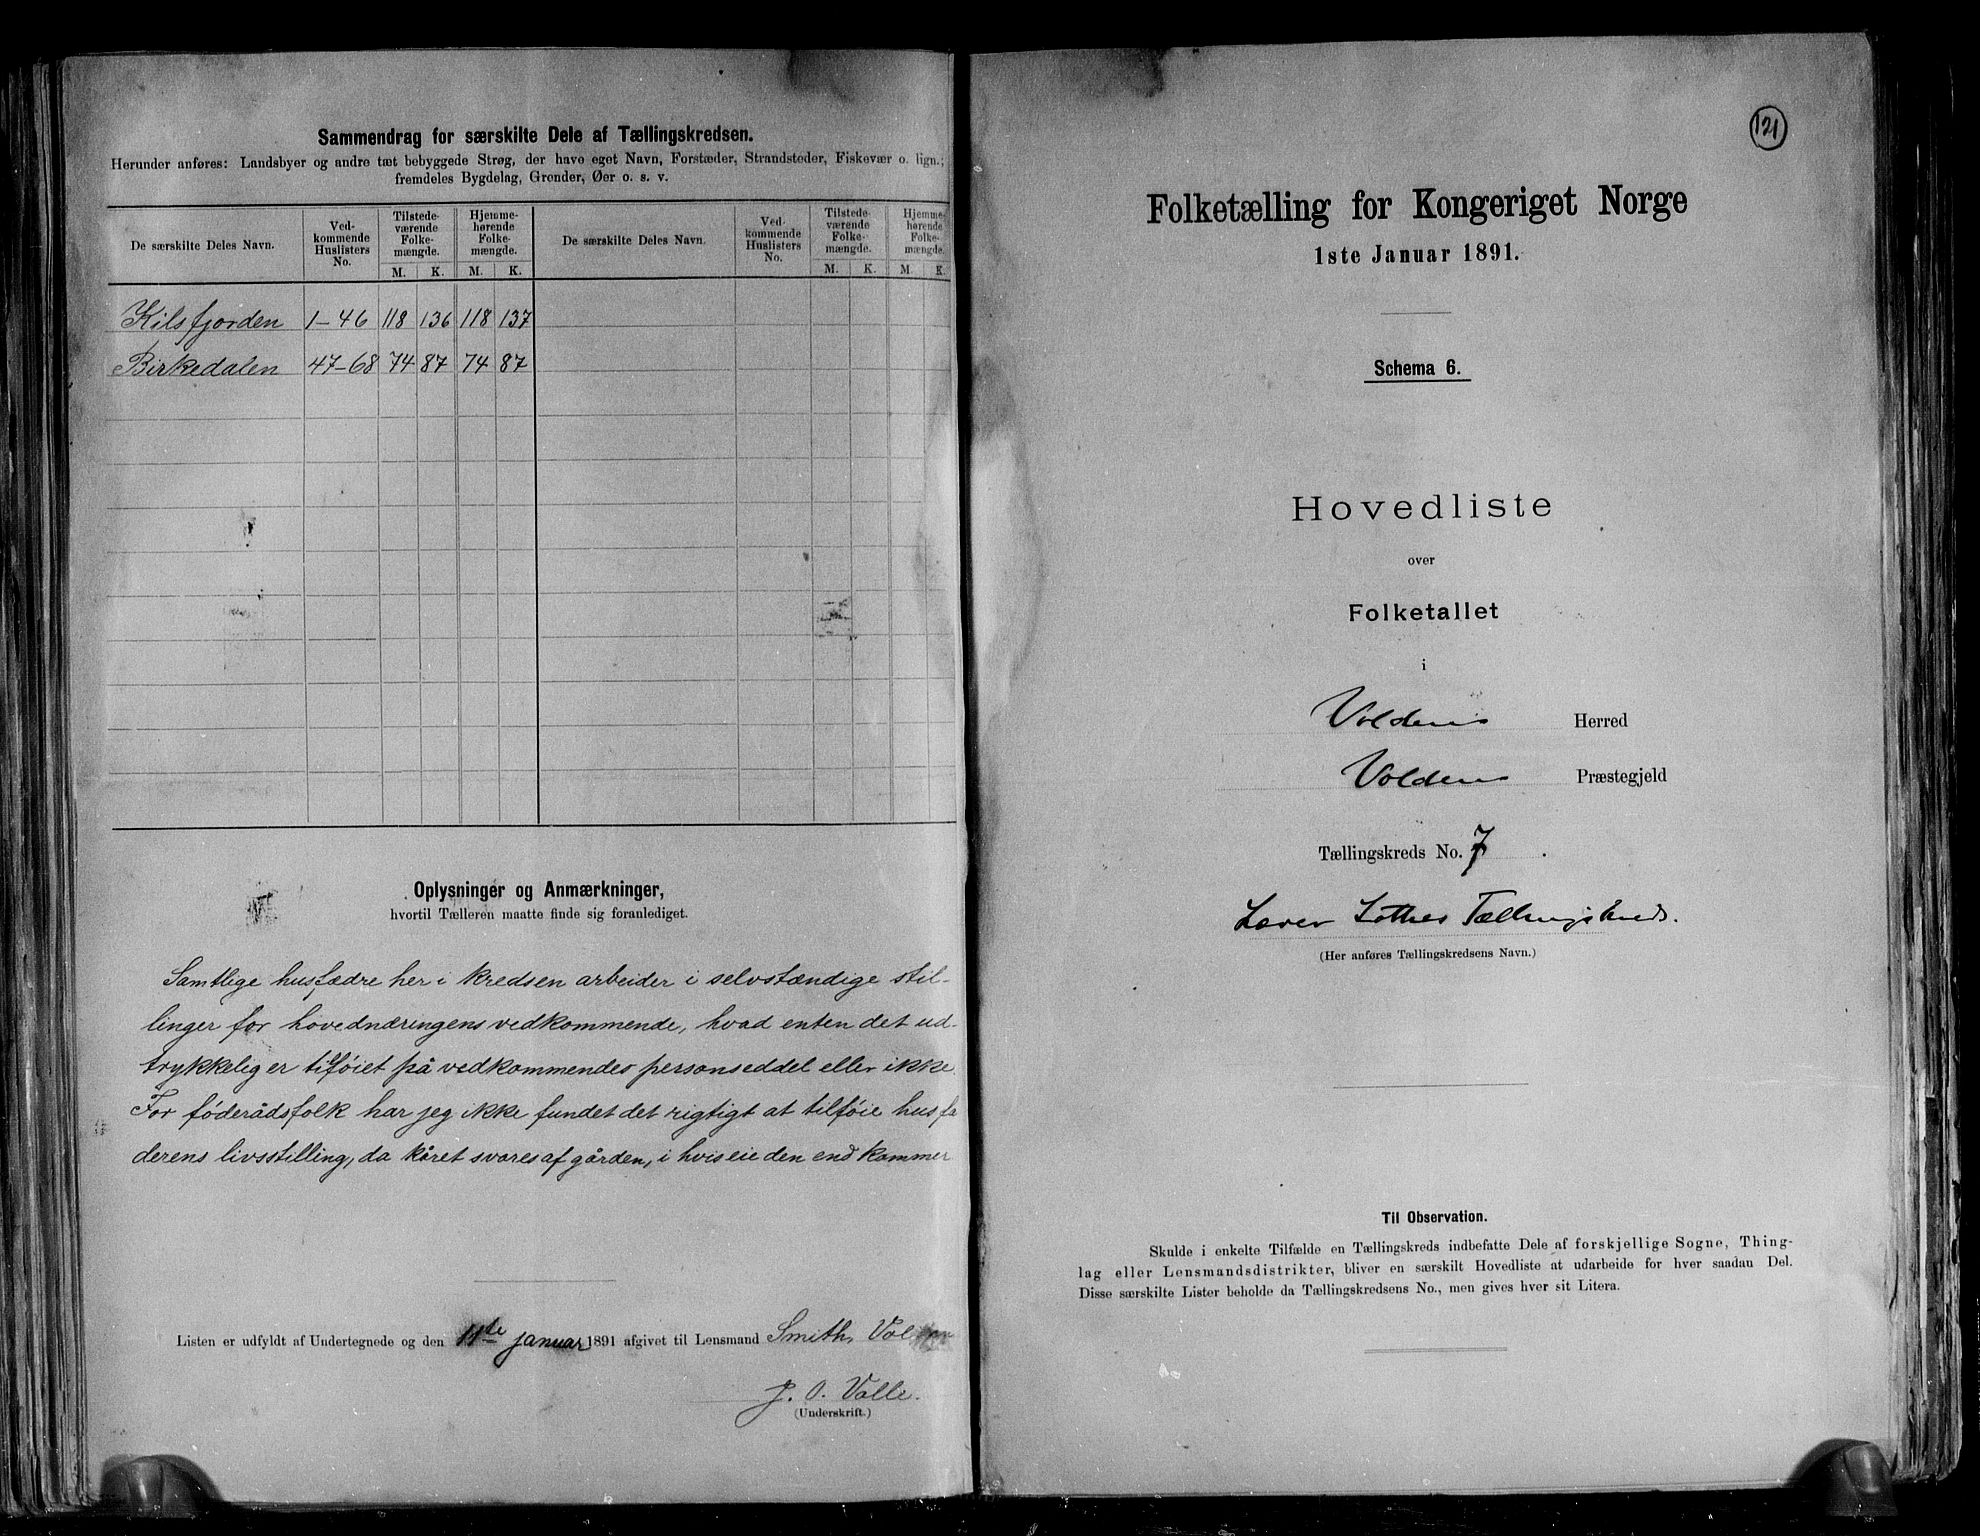 Sammendrag for særskilte Dele af Tællingskredsen.
Herunder anføres: Landsbyer og andre tæt bebyggede Strøg, der have eget Navn, Forstæder, Strandsteder, Fiskevær o. lign.;
fremdeles Bygdelag, Grender, Øer o. s. v.
De særskilte Deles Navn. Vedkommende Huslisters No. Tilstedeværende Folkemængde. M. K. Hjemmehørende Folkemængde. M. K. De særskilte Deles Navn. Vedkommende Huslisters No. Tilstedeværende Folkemængde. M. K. Hjemmehørende Folkemængde. M. K.
Kilsfjorden 1-46 118 136 118 137
Birkedalen 47-68 74 87 74 87
Oplysninger og Anmærkninger,
hvortil Tælleren maatte finde sig foranlediget.
Samtlige husfædre her i kredsen arbeider i selvstændige stil-
linger for hovednæringens vedkommende, hvad enten det ud-
trykkelig er tilføiet på vedkommendes personseddel eller ikke.
For føderådsfolk har jeg ikke fundet det rigtigt at tilføie husfa
derens livsstilling, da kåret svares af gården, i hvis eie den end kommer
Listen er udfyldt af Undertegnede og den 11te januar 1891 afgivet til Lensmand Smith, Volden
J. O. Valle.
(Underskrift.)
121
Folketælling for Kongeriget Norge
1ste Januar 1891.
Schema 6.
Hovedliste
over
Folketallet
i
Voldens Herred
Voldens Præstegjeld
Tællingskreds No. 7.
Tællingskreds.
(Her anføres Tællingskredsens Navn.)
Til Observation.
Skulde i enkelte Tilfælde en Tællingskreds indbefatte Dele af forskjellige Sogne, Thing-
lag eller Lensmandsdistrikter, bliver en særskilt Hovedliste at udarbeide for hver saadan Del.
Disse særskilte Lister beholde da Tællingskredsens No., men gives hver sit Litera.